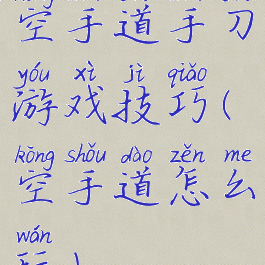 空手道手刀
yóu xì jì qiǎo
游戏技巧(
kōng shǒu dào zěn me
空手道怎么
wán
玩)